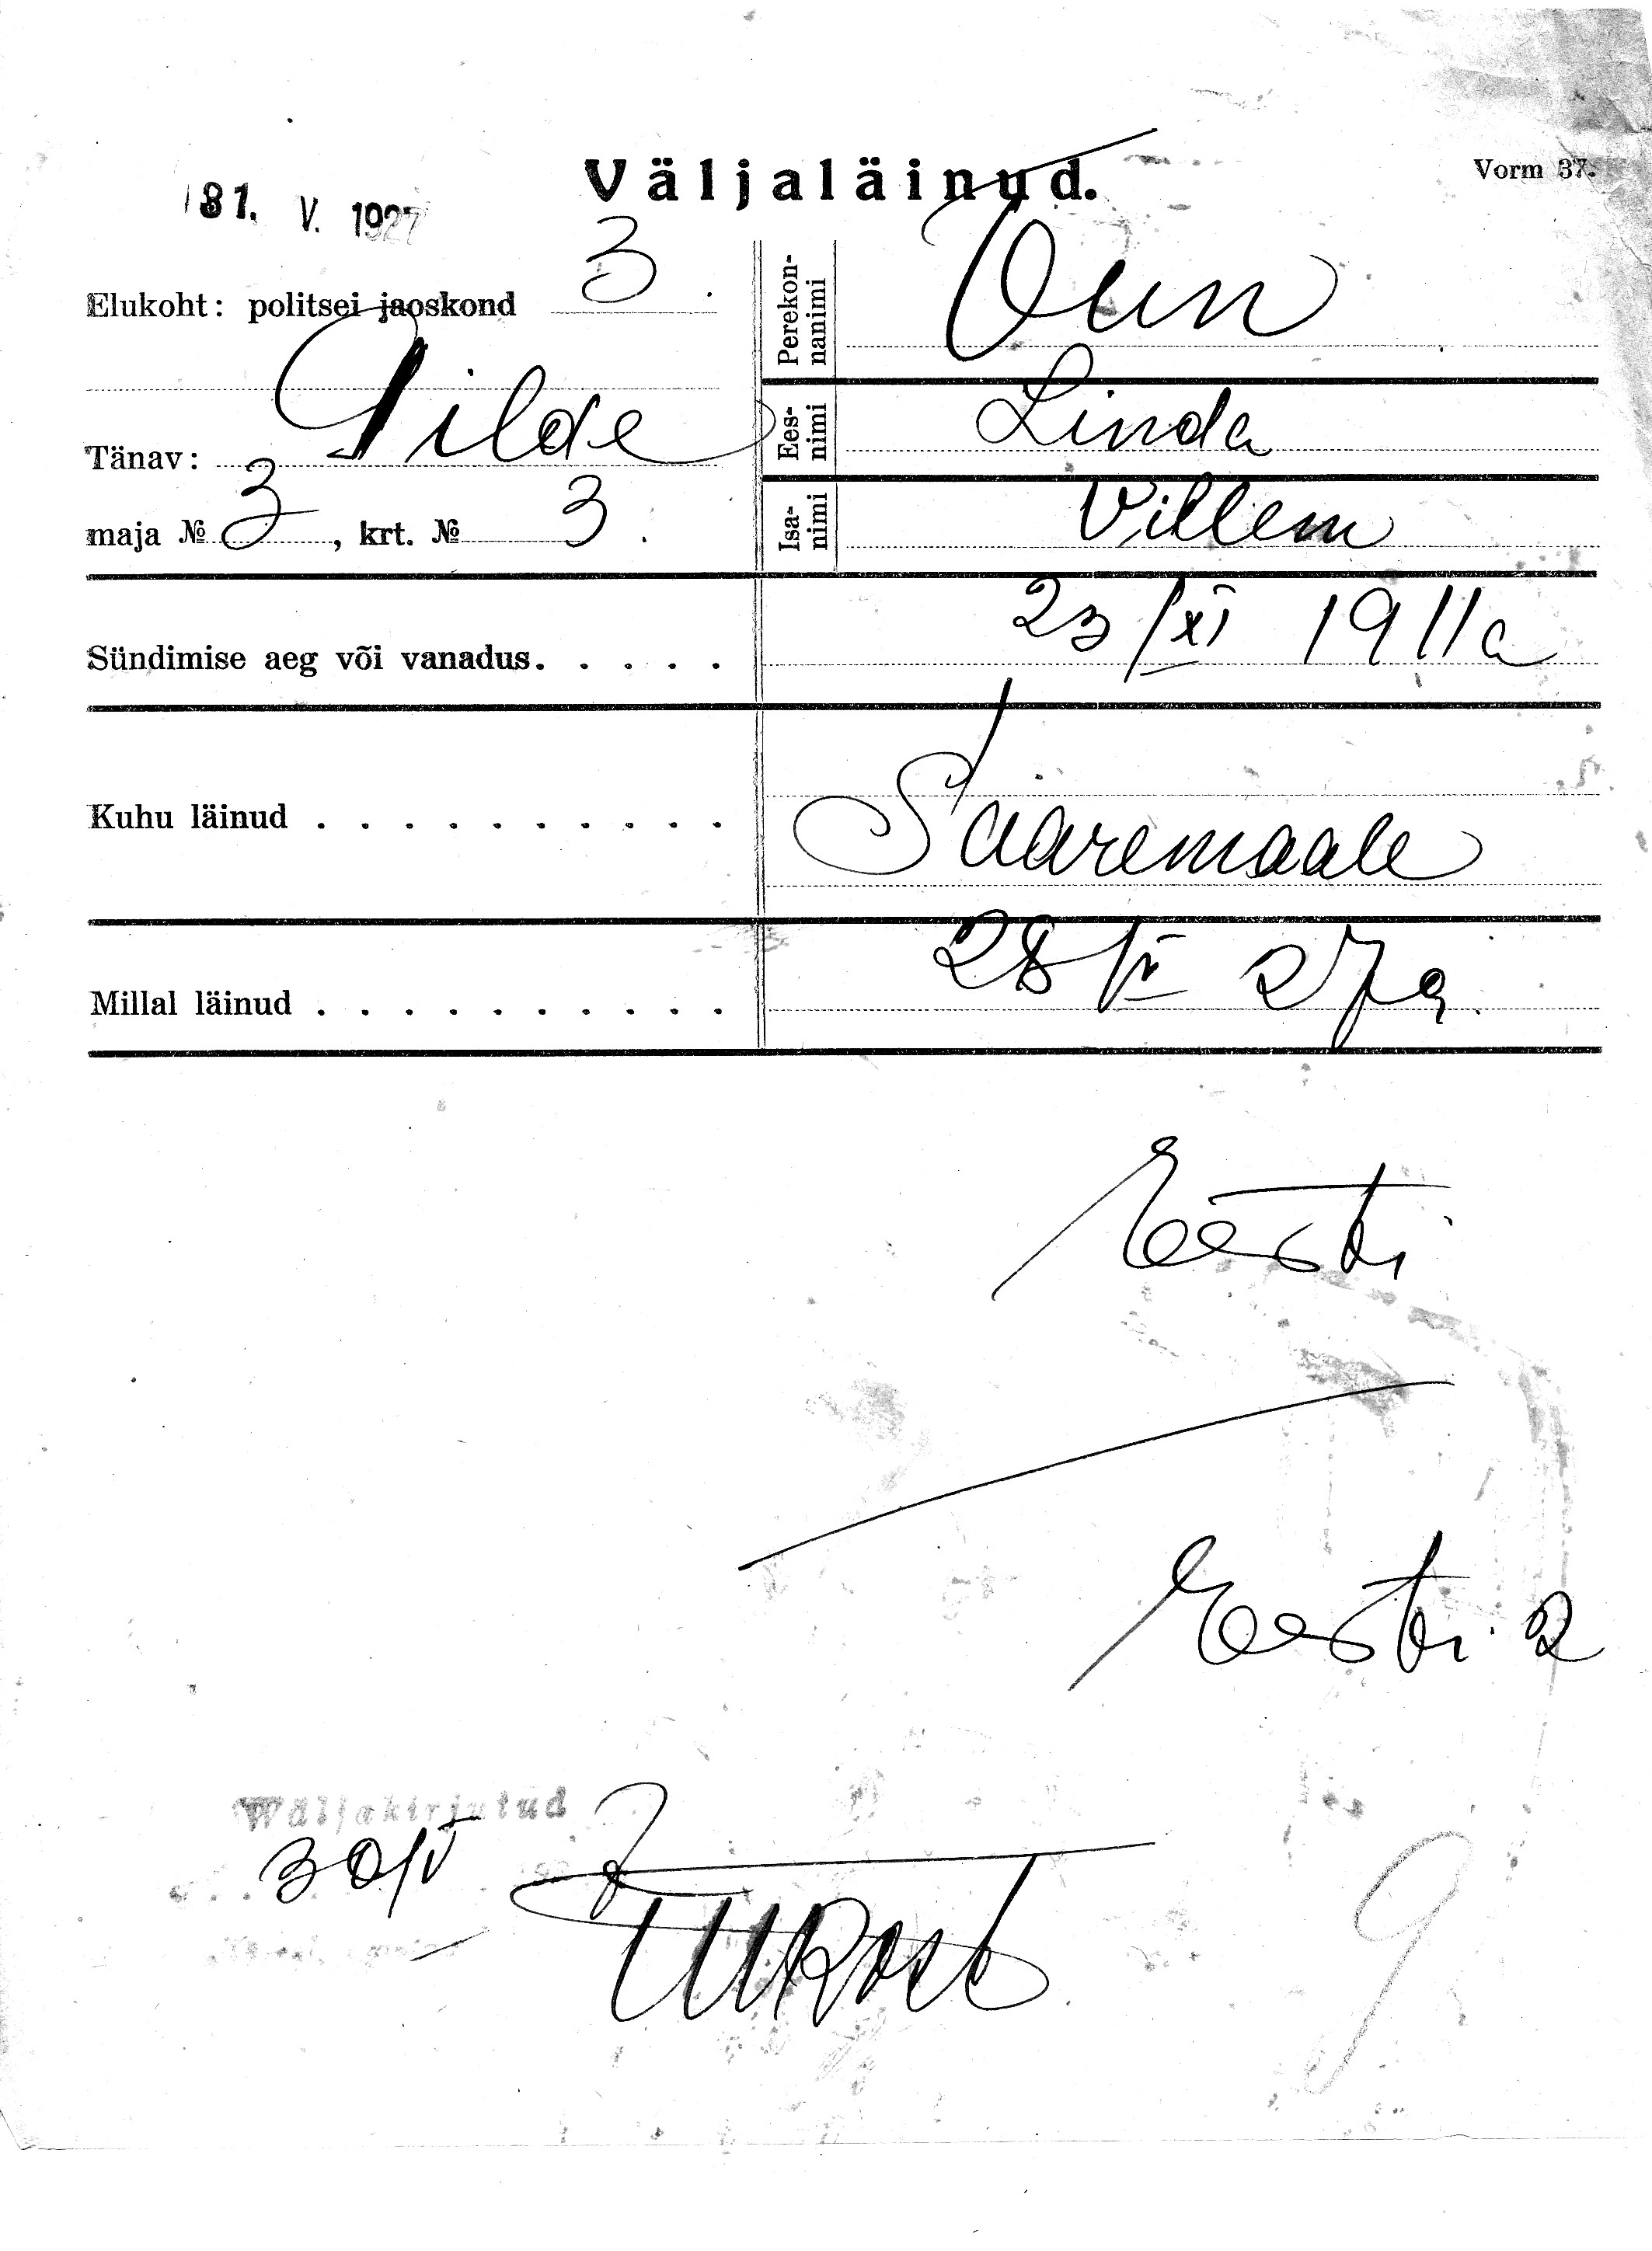 Väljaläinud.
Vorm 37.
31. V. 1927
Elukoht: politsei jaoskond 3.
Tänav: Pilde
maja № 3, krt. № 3.
Perekonnanimi Oun
Eesnimi Linda
Isanimi Villem
Sündimise aeg või vanadus. . . . . 23/XI 1911a
Kuhu läinud . . . . . . . . . . Saaremaale
Millal läinud . . . . . . . . . . 28/V 27a.
Eesti
Eesti. 2
Wäljakirjutud
30/V
9